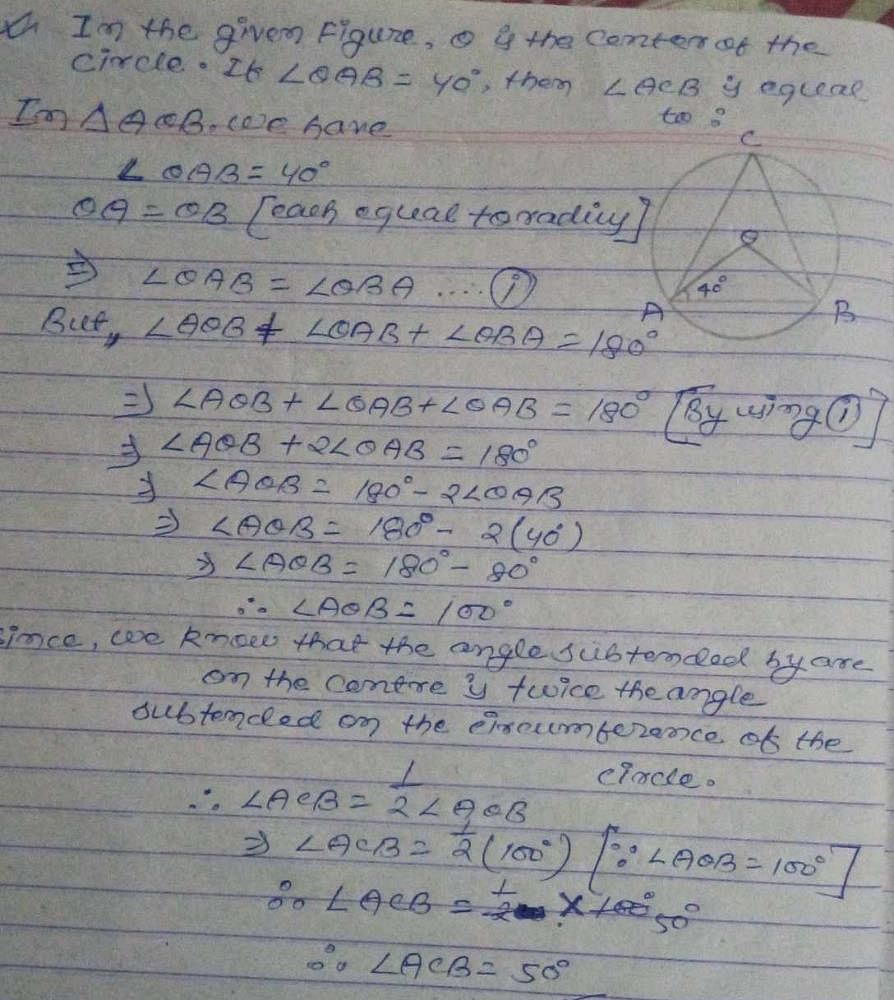 In the given Figure, O is the center of the
circle. If ∠OAB = 40°, then ∠ACB is equal
to :
In △AOB, we have
∠OAB = 40°
OA = OB [each equal to radius]
⇒ ∠OAB = ∠OBA .... (i)
But, ∠AOB + ∠OAB + ∠OBA = 180°
⇒ ∠AOB + ∠OAB + ∠OAB = 180° [By using (i)]
⇒ ∠AOB + 2∠OAB = 180°
⇒ ∠AOB = 180° - 2∠OAB
⇒ ∠AOB = 180° - 2(40°)
⇒ ∠AOB = 180° - 80°
∴ ∠AOB = 100°
Since, we know that the angle subtended by arc
on the centre is twice the angle
subtended on the circumference of the
circle.
∴ ∠ACB = 1/2 ∠AOB
⇒ ∠ACB = 1/2 (100°) [∵ ∠AOB = 100°]
∴ ∠ACB = 50°
∴ ∠ACB = 50°
C
O
40°
A
B